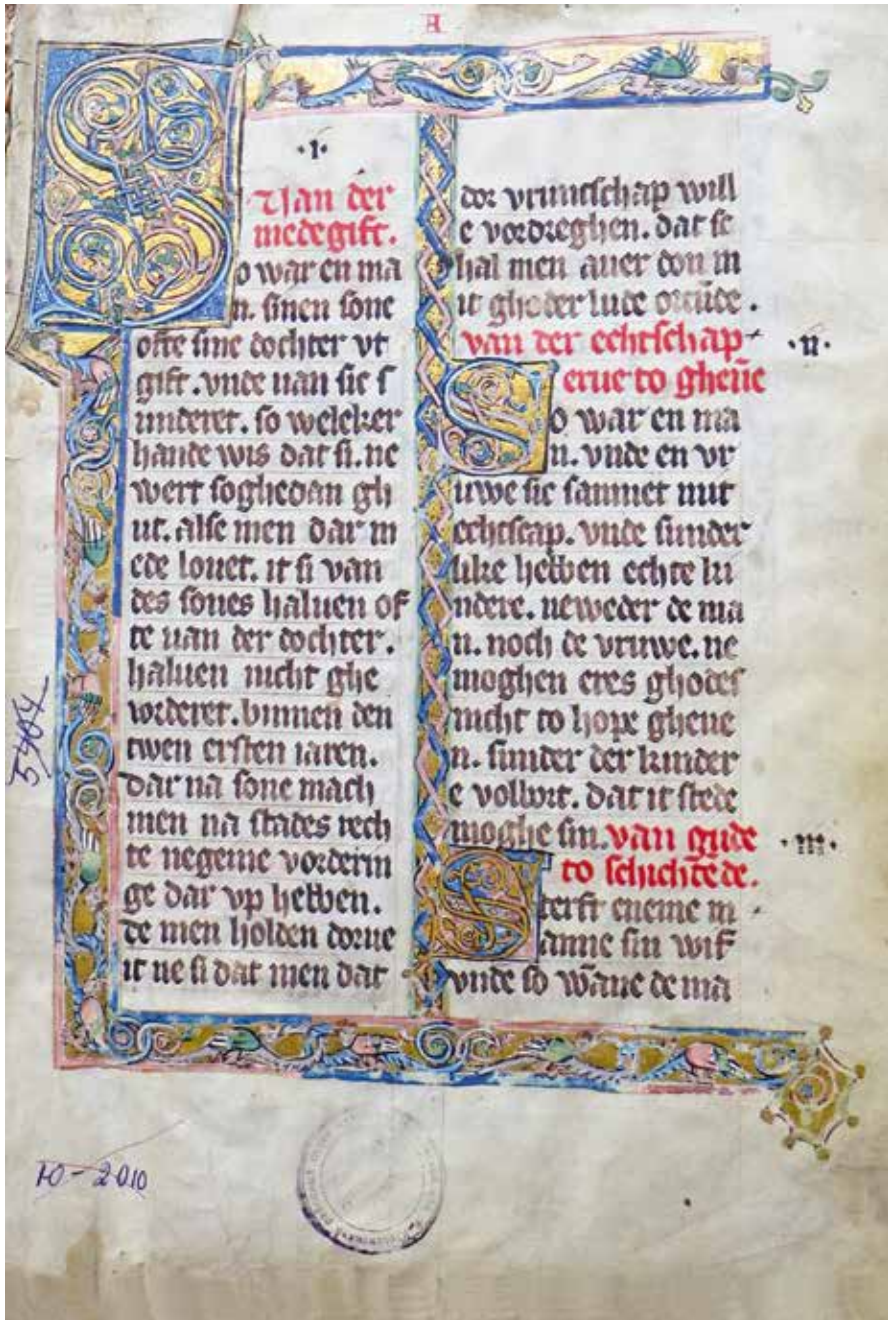 ·i·
Van der
medegift.
o war en ma
n. sinen sone
ofte sine dochter vt
gift. vnde uan sic s
underet. so welcker
hande wis dat si. ne
wert soghedan gh
ut. alse men dar m
ede louet. it si van
des sones haluen of
te uan der dochter.
haluen nicht ghe
vorderet. binnen den
twen ersten iaren.
dar na sone mach
men na stades rech
te negeine vorderin
ge dar vp hebben.
de men holden dorue
it ne si dat men dat
dor vruntschap will
e vordreghen. dat sc
hal men auer don m
it ghoder lude orcūde.
van der echtschap
·ii·
erue to gheūe
So war en ma
n. vnde en vr
uwe sic samnet mit
echtscap. vnde sunder
like hebben echte ki
ndere. neweder de ma
n. noch de vruwe. ne
moghen eres ghodes
nicht to hope gheue
n. sunder der kinder
e volbort. dat it stede
moghe sin. van gude
·iii·
to schichtēde.
Sterft eneme m
anne sin wif
vnde so wāne de ma
5464
Ю-2010